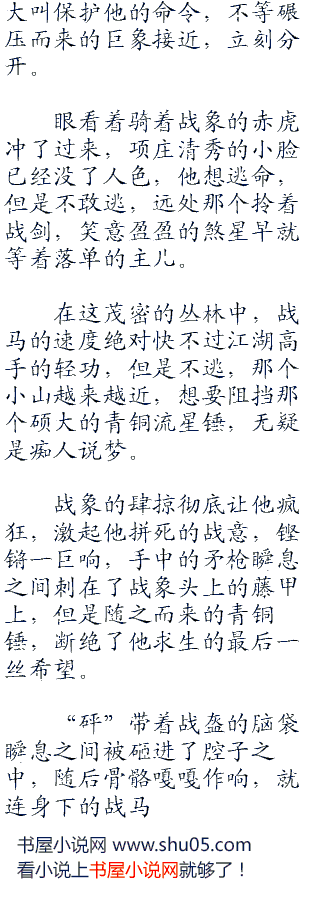 大叫保护他的命令，不等碾
压而来的巨象接近，立刻分
开。
眼看着骑着战象的赤虎
冲了过来，项庄清秀的小脸
已经没了人色，他想逃命，
但是不敢逃，远处那个拎着
战剑，笑意盈盈的煞星早就
等着落单的主儿。
在这茂密的丛林中，战
马的速度绝对快不过江湖高
手的轻功，但是不逃，那个
小山越来越近，想要阻挡那
个硕大的青铜流星锤，无疑
是痴人说梦。
战象的肆掠彻底让他疯
狂，激起他拼死的战意，铿
锵一巨响，手中的矛枪瞬息
之间刺在了战象头上的藤甲
上，但是随之而来的青铜
锤，断绝了他求生的最后一
丝希望。
“砰”带着战盔的脑袋
瞬息之间被砸进了腔子之
中，随后骨骼嘎嘎作响，就
连身下的战马
书屋小说网 www.shu05.com
看小说上书屋小说网就够了！